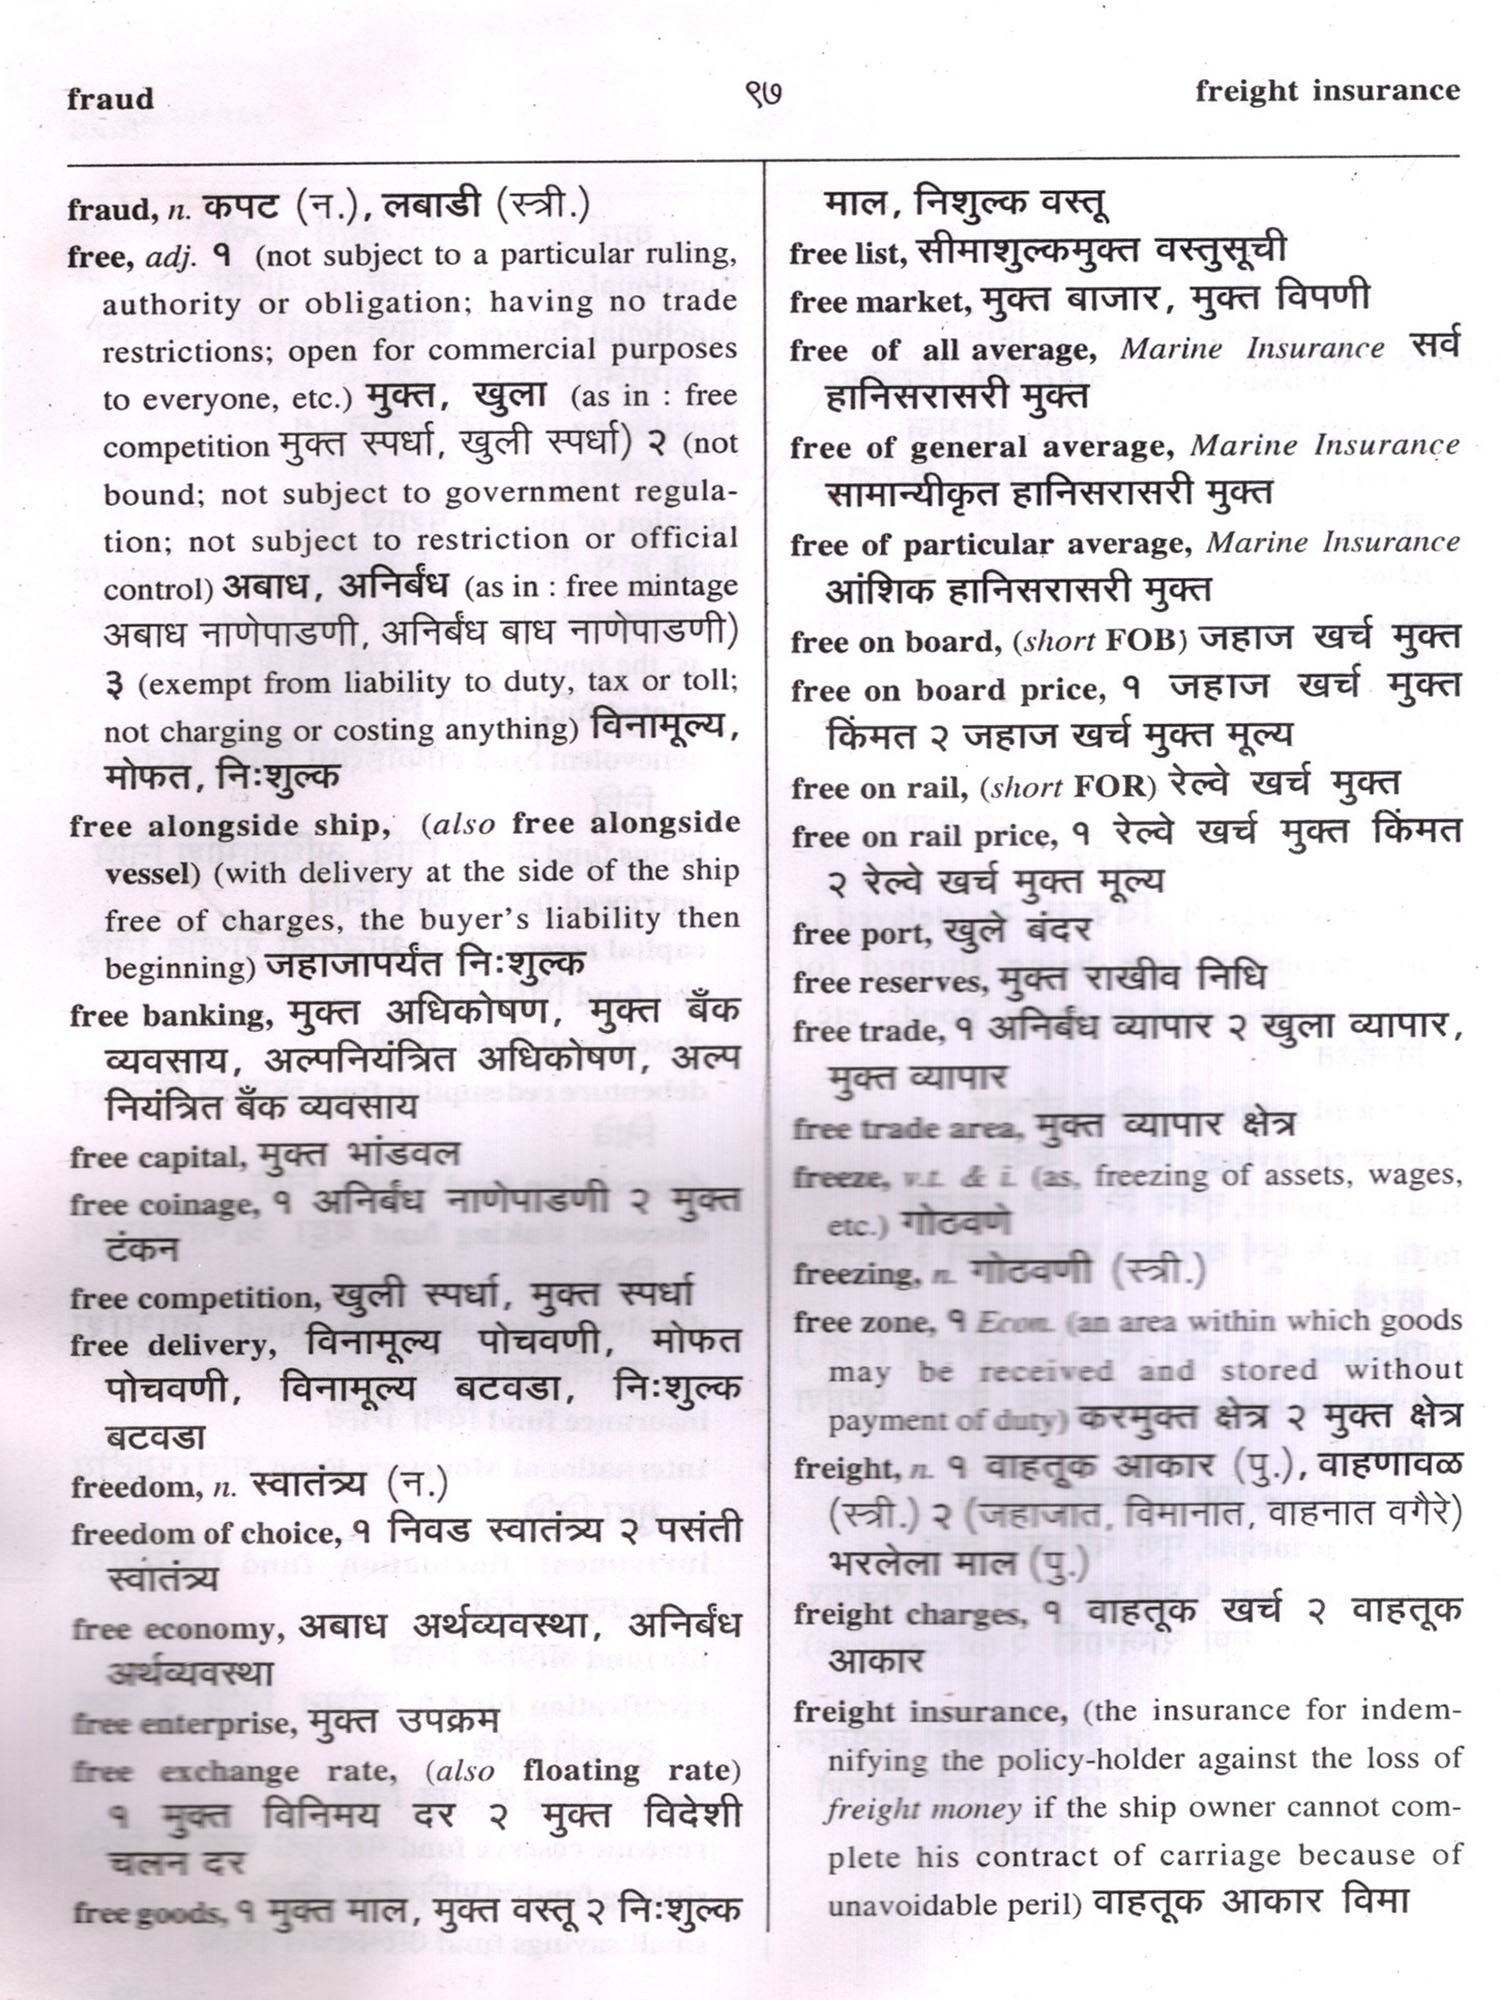 fraud
९७
freight insurance
fraud, n. कपट (न.), लबाडी (स्त्री.)
free, adj. १ (not subject to a particular ruling,
authority or obligation; having no trade
restrictions; open for commercial purposes
to everyone, etc.) मुक्त, खुला (as in : free
competition मुक्त स्पर्धा, खुली स्पर्धा) २ (not
bound; not subject to government regula-
tion; not subject to restriction or official
control) अबाध, अनिर्बंध (as in : free mintage
अबाध नाणेपाडणी, अनिर्बंध बाध नाणेपाडणी)
३ (exempt from liability to duty, tax or toll;
not charging or costing anything) विनामूल्य,
मोफत, निःशुल्क
free alongside ship, (also free alongside
vessel) (with delivery at the side of the ship
free of charges, the buyer's liability then
beginning) जहाजापर्यंत निःशुल्क
free banking, मुक्त अधिकोषण, मुक्त बँक
व्यवसाय, अल्पनियंत्रित अधिकोषण, अल्प
नियंत्रित बँक व्यवसाय
free capital, मुक्त भांडवल
free coinage, १ अनिर्बंध नाणेपाडणी २ मुक्त
टंकन
free competition, खुली स्पर्धा, मुक्त स्पर्धा
free delivery, विनामूल्य पोचवणी, मोफत
पोचवणी, विनामूल्य बटवडा, निःशुल्क
बटवडा
freedom, n. स्वातंत्र्य (न.)
freedom of choice, १ निवड स्वातंत्र्य २ पसंती
स्वांतंत्र्य
free economy, अबाध अर्थव्यवस्था, अनिर्बंध
अर्थव्यवस्था
free enterprise, मुक्त उपक्रम
free exchange rate, (also floating rate)
१ मुक्त विनिमय दर २ मुक्त विदेशी
चलन दर
free goods, १ मुक्त माल, मुक्त वस्तू २ निःशुल्क
माल, निशुल्क वस्तू
free list, सीमाशुल्कमुक्त वस्तुसूची
free market, मुक्त बाजार, मुक्त विपणी
free of all average, Marine Insurance सर्व
हानिसरासरी मुक्त
free of general average, Marine Insurance
सामान्यीकृत हानिसरासरी मुक्त
free of particular average, Marine Insurance
आंशिक हानिसरासरी मुक्त
free on board, (short FOB) जहाज खर्च मुक्त
free on board price, १ जहाज खर्च मुक्त
किंमत २ जहाज खर्च मुक्त मूल्य
free on rail, (short FOR) रेल्वे खर्च मुक्त
free on rail price, १ रेल्वे खर्च मुक्त किंमत
२ रेल्वे खर्च मुक्त मूल्य
free port, खुले बंदर
free reserves, मुक्त राखीव निधि
free trade, १ अनिर्बंध व्यापार २ खुला व्यापार,
मुक्त व्यापार
free trade area, मुक्त व्यापार क्षेत्र
freeze, v.t. & i. (as, freezing of assets, wages,
etc.) गोठवणे
freezing, n. गोठवणी (स्त्री.)
free zone, १ Econ. (an area within which goods
may be received and stored without
payment of duty) करमुक्त क्षेत्र २ मुक्त क्षेत्र
freight, n. १ वाहतूक आकार (पु.), वाहणावळ
(स्त्री.) २ (जहाजात, विमानात, वाहनात वगैरे)
भरलेला माल (पु.)
freight charges, १ वाहतूक खर्च २ वाहतूक
आकार
freight insurance, (the insurance for indem-
nifying the policy-holder against the loss of
freight money if the ship owner cannot com-
plete his contract of carriage because of
unavoidable peril) वाहतूक आकार विमा